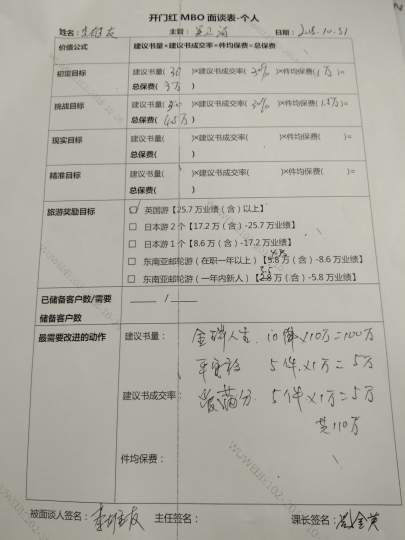 开门红 MBO 面谈表-个人
姓名: 主管: 日期: 2018.10.31
价值公式 建议书量×建议书成交率×件均保费=总保费
初定目标 建议书量( 30 )×建议书成交率( 30% )×件均保费( 1万 )=
总保费( )
挑战目标 建议书量( )×建议书成交率( 30% )×件均保费( 1.5万 )=
总保费( )
现实目标 建议书量( )×建议书成交率( )×件均保费( )=
总保费( )
精准目标 建议书量( )×建议书成交率( )×件均保费( )=
总保费( )
旅游奖励目标 英国游【25.7 万业绩(含)以上】
日本游 2 个【17.2 万(含)-25.7 万业绩】
日本游 1 个【8.6 万(含)-17.2 万业绩】
东南亚邮轮游(在职一年以上)【5.8 万(含)-8.6 万业绩】
东南亚邮轮游(一年内新人)【2.8 万(含)-5.8 万业绩】
已储备客户数/需要
储备客户数 /
最需要改进的动作 建议书量: 金瑞人生 10件×10万=100万
5件×1万=5万
建议书成交率: 满分 5件×1万=5万
共110万
件均保费:
被面谈人签名: 主任签名: 课长签名: